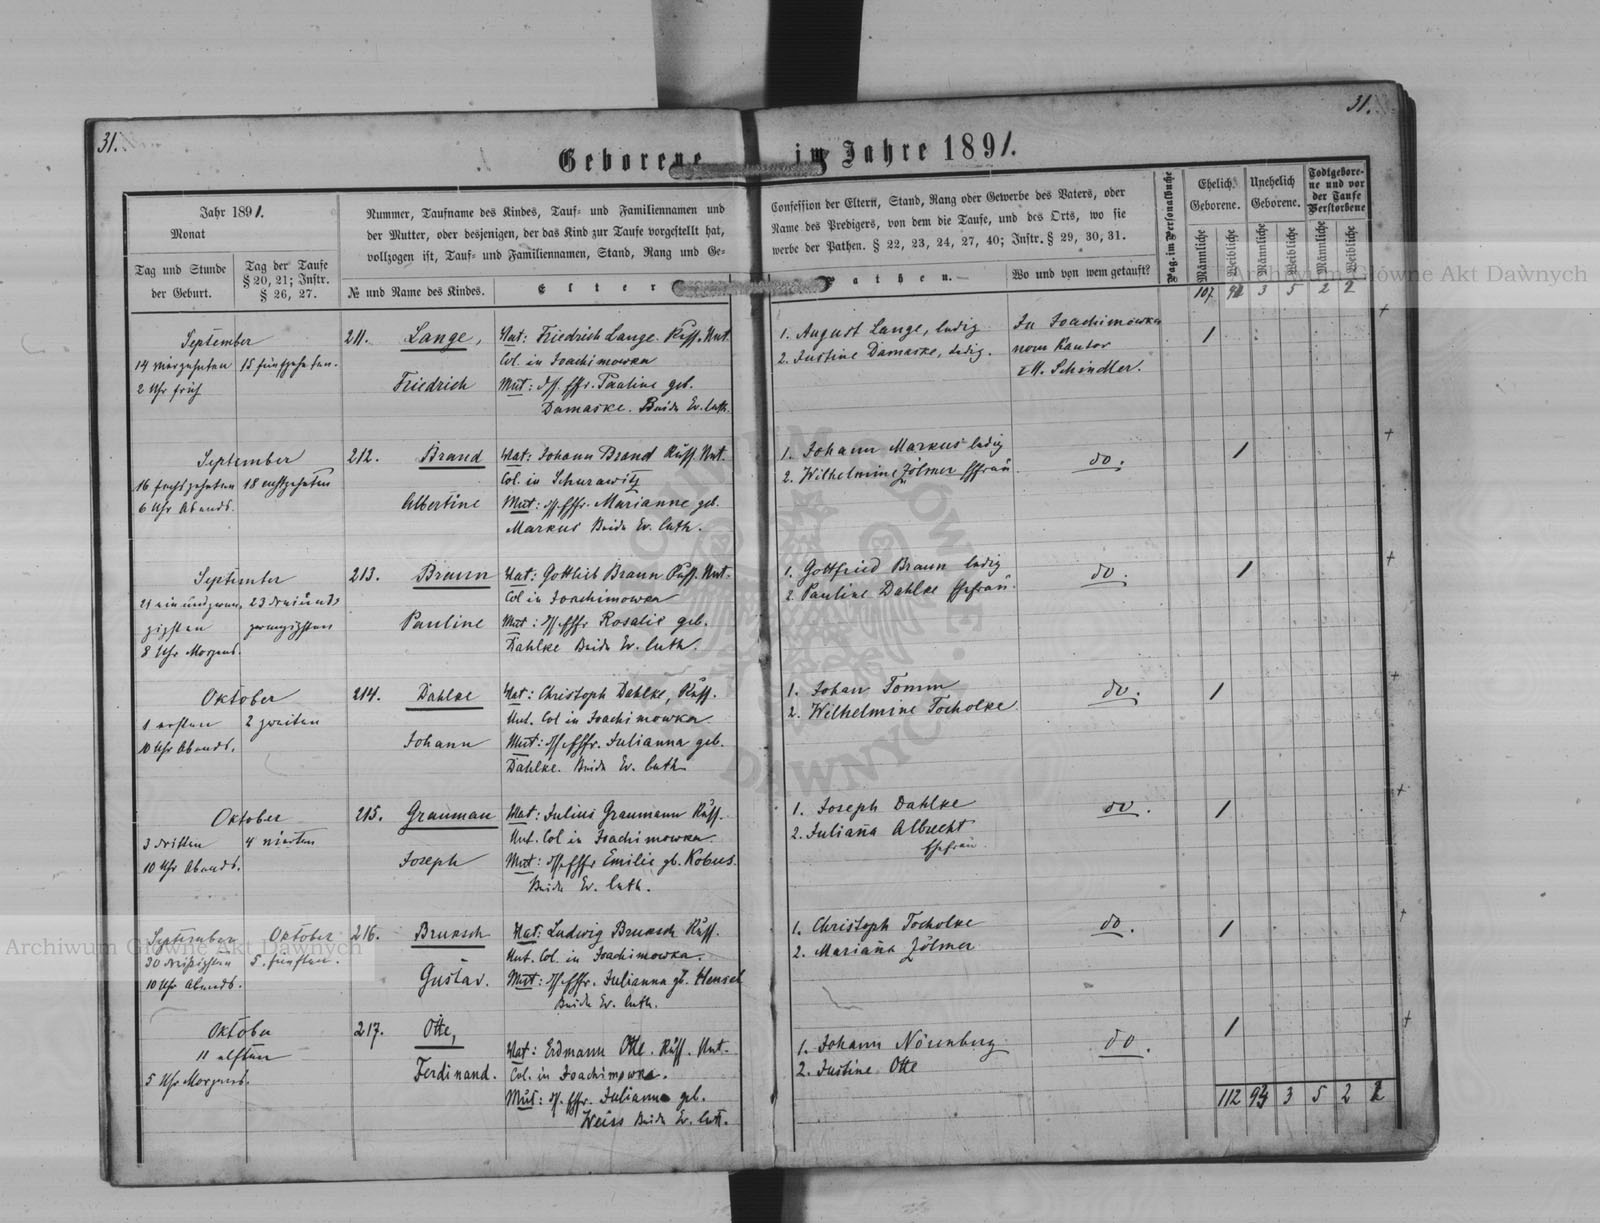 31.
31.
Geborene im Jahre 1891.
Jahr 1891.
Monat
Tag und Stunde der Geburt.
Tag der Taufe § 20, 21; Instr. § 26, 27.
Nummer, Taufname des Kindes, Tauf- und Familiennamen und
der Mutter, oder desjenigen, der das Kind zur Taufe vorgestellt hat,
vollzogen ist, Tauf- und Familiennamen, Stand, Rang und Ge-
№ und Name des Kindes.
Elter
Confession der Eltern, Stand, Rang oder Gewerbe des Vaters, oder
Name des Predigers, von dem die Taufe, und des Orts, wo sie
werbe der Pathen. § 22, 23, 24, 27, 40; Instr. § 29, 30, 31.
Pathen.
Wo und von wem getauft?
Pag. im Personalbuche
Ehelich Geborene.
Unehelich Geborene.
Todtgeborene und vor der Taufe Verstorbene
Männliche
Weibliche
Männliche
Weibliche
Männliche
Weibliche
107 3 5 2 2
September
14 vierzehnten 15 fünfzehnten.
2 Uhr früh
211. Lange,
Friedrich
Vat: Friedrich Lange. Russ. Unt.
Col. in Joachimowka
Mut: Pauline geb.
Damaske. Beide Ev. luth.
1. August Lange, ledig
2. Justine Damaske, ledig.
In Joachimowka
vom Kantor
M. Schindler.
1
September
16 sechszehnten 18 achtzehnten
6 Uhr Abends.
212. Brand
Albertine
Vat: Johann Brand Russ. Unt.
Col. in Schurawitz
Mut: Marianne geb.
Markus Beide Ev. luth.
1. Johann Markus ledig
2. Wilhelmine Zölmer Ehefrau
do.
1
September
21 einundzwan- 23 dreiund-
zigsten zwanzigsten
8 Uhr Morgens.
213. Braun
Pauline
Vat: Gottlieb Braun Russ. Unt.
Col in Joachimowka
Mut: Rosalie geb.
Dahlke Beide Ev. luth.
1. Gottfried Braun ledig
2. Pauline Dahlke Ehefrau.
do.
1
Oktober
1 ersten 2 zweiten
10 Uhr Abends.
214. Dahlke
Johann
Vat: Christoph Dahlke, Russ.
Unt. Col in Joachimowka
Mut: Julianna geb.
Dahlke. Beide Ev. luth
1. Johan Tomm
2. Wilhelmine Tocholke
do.
1
Oktober
3 dritten 4 vierten
10 Uhr Abends.
215. Grauman
Joseph
Vat: Julius Graumann Russ.
Unt. Col in Joachimowka
Mut: Emilie gb. Kobus.
Beide Ev. luth.
1. Joseph Dahlke
2. Juliana Albrecht
Ehefrau
do.
1
September Oktober
30 dreißigsten 5. fünften.
10 Uhr Abends.
216. Bruksch
Gustav.
Vat: Ludwig Bruksch Russ.
Unt. Col. in Joachimowka.
Mut: Julianna gb. Hensel
Beide Ev. luth.
1. Christoph Tocholke
2. Mariana Zölmer
do.
1
Oktober
11 elften
5 Uhr Morgens.
217. Otte,
Ferdinand.
Vat: Erdmann Otte. Russ. Unt.
Col. in Joachimowka.
Mut: Julianna geb.
Weiss Beide Ev. luth.
1. Johann Nörenberg
2. Justine Otte
do.
1
112 3 5 2
Archiwum Główne Akt Dawnych
Archiwum Główne Akt Dawnych